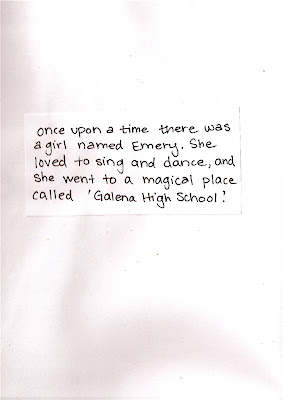 once upon a time there was
a girl named Emery. She
loved to sing and dance, and
she went to a magical place
called 'Galena High School.'